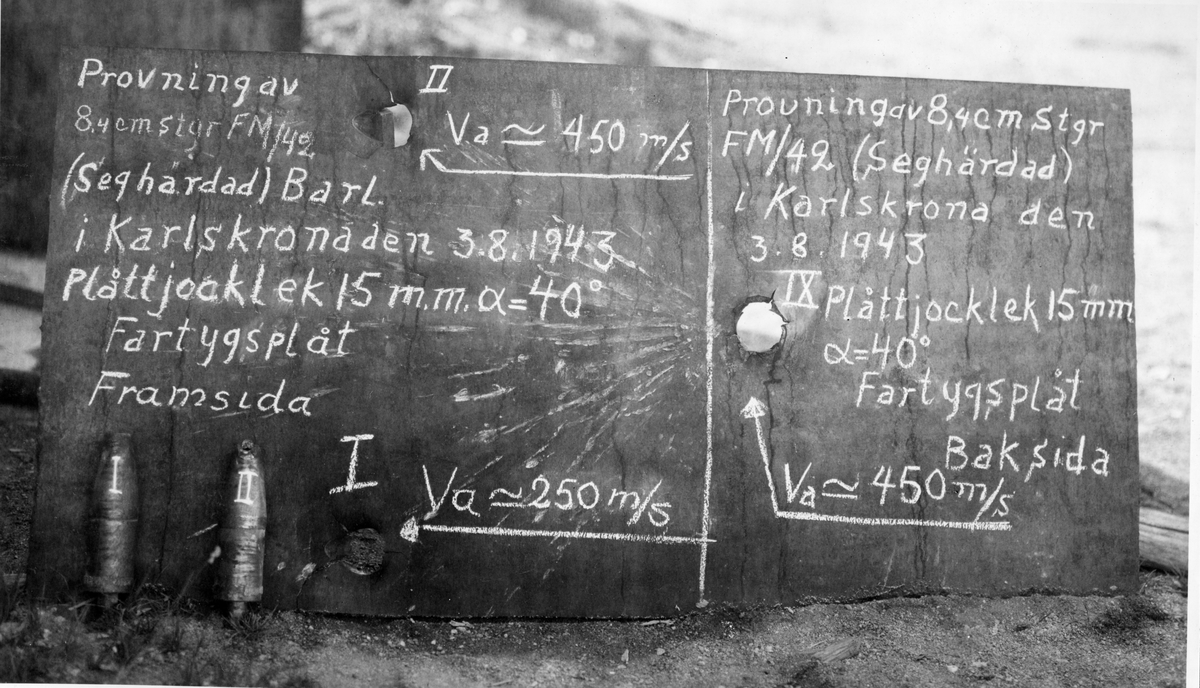 Provning av
8,4 cm stgr FM/42
(Seghärdad) Barl.
i Karlskrona den 3.8.1943
Plåttjocklek 15 m.m. α=40°
Fartygsplåt
Framsida
I
II
II
Va ≃ 450 m/s
I
Va ≃ 250 m/s
Provning av 8,4 cm Stgr
FM/42 (Seghärdad)
i Karlskrona den
3.8.1943
IX Plåttjocklek 15 mm
α=40°
Fartygsplåt
Baksida
Va ≃ 450 m/s